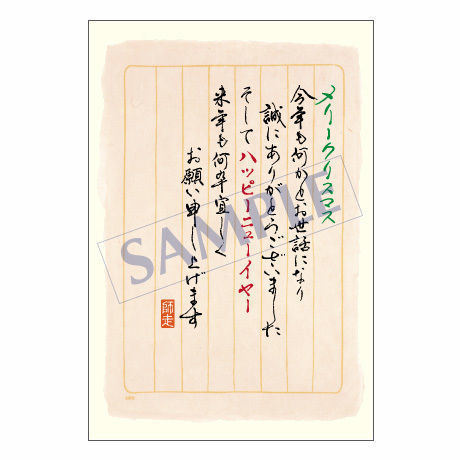 メリークリスマス
今年も何かとお世話になり
誠にありがとうございました
そして ハッピーニューイヤー
来年も何卒宜しく
お願い申し上げます
師走
SAMPLE